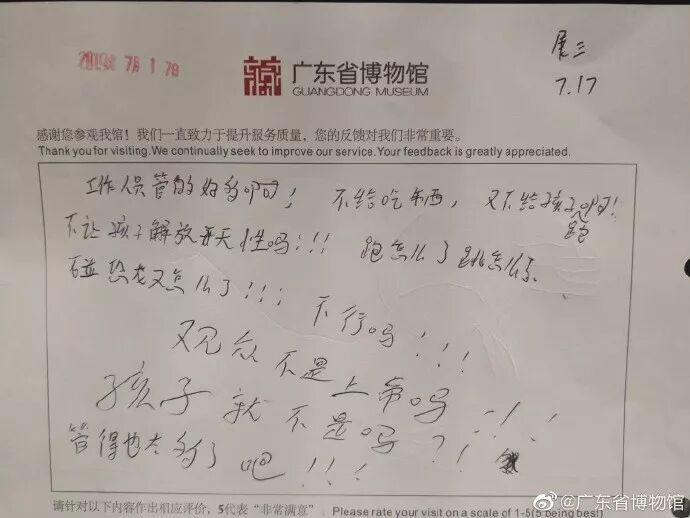 展三
7.17
广东省博物馆
GUANGDONG MUSEUM
感谢您参观我馆！我们一直致力于提升服务质量，您的反馈对我们非常重要。
Thank you for visiting.We continually seek to improve our service.Your feedback is greatly appreciated.
工作人员管的好多啊！不给吃东西，又不给孩子跑啊！
不让孩子解放天性吗！！！跑怎么了跳怎么了
碰恐龙又怎么了！！！不行吗！！！
观众不是上帝吗！！！
孩子就不是吗？！！
管得也太多了吧！！！
请针对以下内容作出相应评价，5代表“非常满意”
Please rate your visit on a scale of 1-5(5 being best)
@广东省博物馆